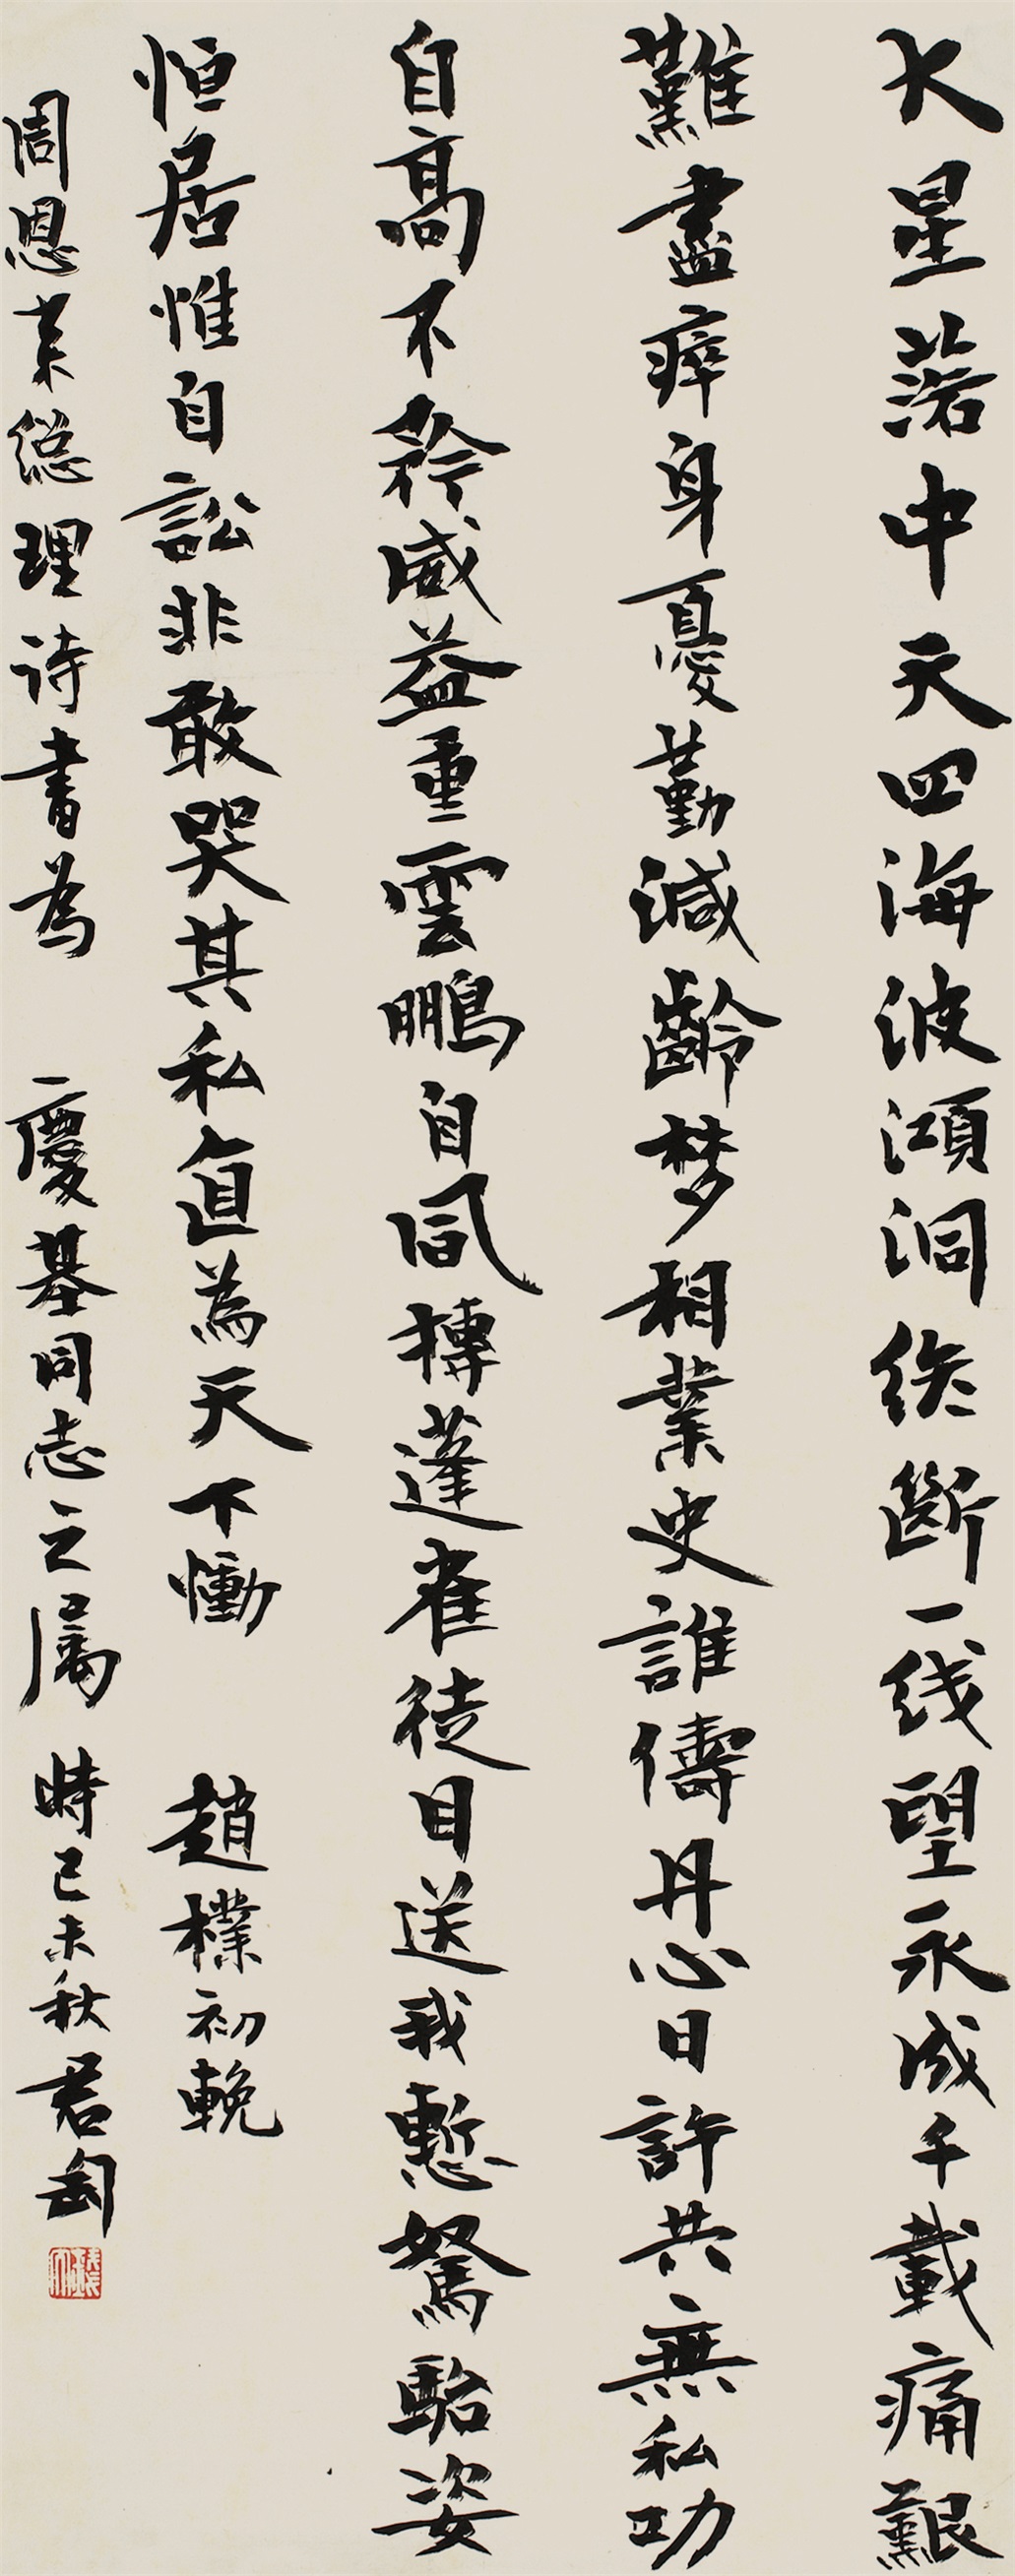 大星落中天四海波澒洞终断一线望永成千载痛艱
難盡瘁身憂勤減齡梦相業史誰儔丹心日許共無私功
自高不矜威益重雲鵬自風摶蓬雀徒目送我慙駑駘姿
恒居惟自訟非敢哭其私直為天下慟 趙樸初輓
周恩来總理诗書為 慶基同志之属 時己未秋君匋